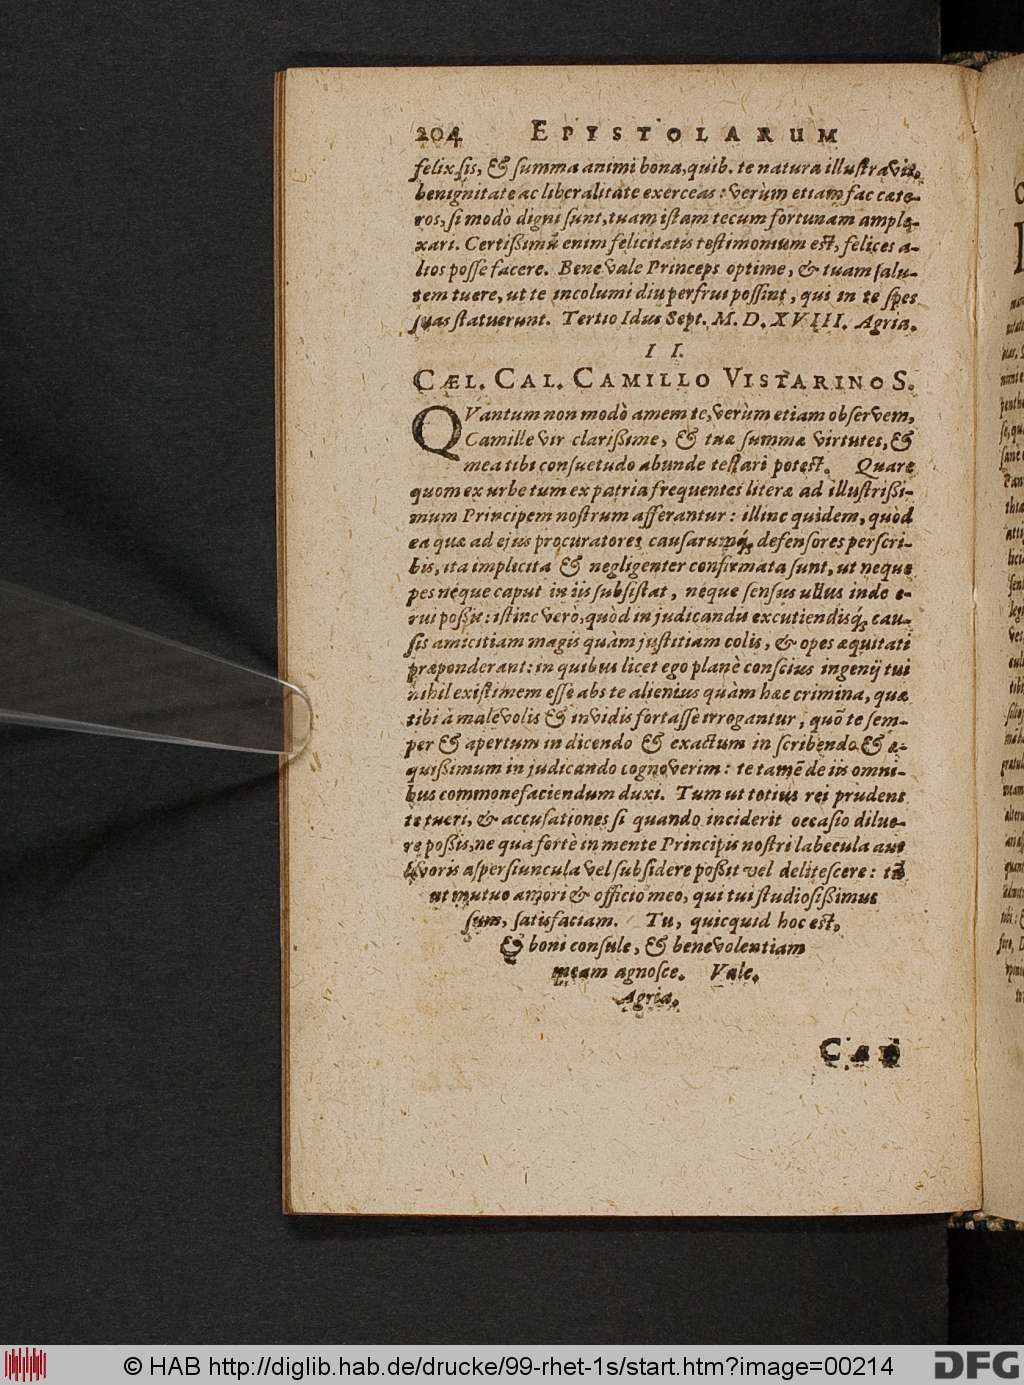 204 EPISTOLARUM
felix sis, & summa animi bona, quib. te natura illustravit,
benignitate ac liberalitate exerceas: verùm etiam fac cæte-
ros, si modò digni sunt, tuam istam tecum fortunam ample-
xari. Certißimũ enim felicitatis testimonium est, felices a-
lios posse facere. Bene vale Princeps optime, & tuam salu-
tem tuere, ut te incolumi diu perfrui possint, qui in te spes
suas statuerunt. Tertio Idus Sept. M. D. XVIII. Agria.
II.
CÆL. CAL. CAMILLO VISTARINO S.
QVantum non modò amem te, verùm etiam observem,
Camille vir clarißime, & tuæ summæ virtutes, &
mea tibi consuetudo abunde testari potest. Quare
quom ex urbe tum ex patria frequentes literæ ad illustrißi-
mum Principem nostrum afferantur: illinc quidem, quòd
ea quæ ad ejus procuratores causarumq́; defensores perscri-
bis, ita implicita & negligenter confirmata sunt, ut neque
pes neque caput in iis subsistat, neque sensus ullus inde e-
rui possit: istinc verò, quòd in judicandis excutiendisq́; cau-
sis amicitiam magis quàm justitiam colis, & opes æquitati
præponderant: in quibus licet ego planè conscius ingenij tui
nihil existimem esse abs te alienius quàm hæc crimina, quæ
tibi à malevolis & invidis fortasse irrogantur, quõ te sem-
per & apertum in dicendo & exactum in scribendo & æ-
quißimum in judicando cognoverim: te tamẽ de iis omni-
bus commonefaciendum duxi. Tum ut totius rei prudens
te tueri, & accusationes si quando inciderit occasio dilue-
re possis, ne qua fortè in mente Principis nostri labecula aut
livoris aspersiuncula vel subsidere poßit vel delitescere: tũ
ut mutuo amori & officio meo, qui tui studiosißimus
sum, satisfaciam. Tu, quicquid hoc est,
& boni consule, & benevolentiam
meam agnosce. Vale.
Agria.
© HAB http://diglib.hab.de/drucke/99-rhet-1s/start.htm?image=00214
DFG